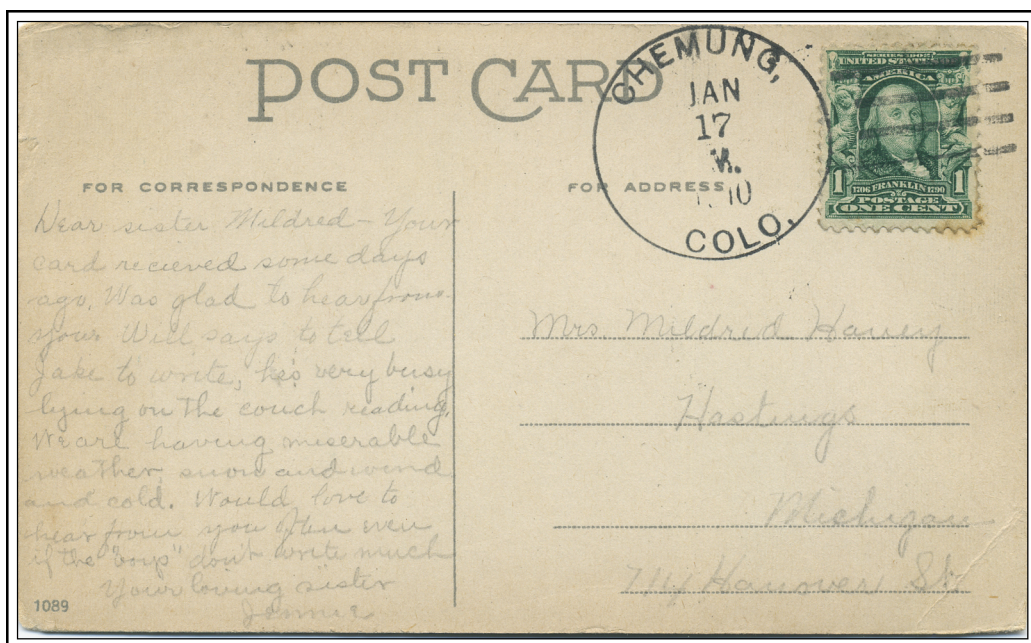 POST CARD
CHEMUNG,
JAN
17
M.
COLO.
SERIES 1902
UNITED STATES
AMERICA
1 1706 FRANKLIN 1790 1
POSTAGE
ONE CENT
FOR CORRESPONDENCE
FOR ADDRESS
Dear sister Mildred – Your
card recieved some days
ago. Was glad to hear from
you. Will says to tell
Jake to write, he's very busy
lying on the couch reading.
We are having miserable
weather, snow and wind
and cold. Would love to
hear from you often even
if the "boys" don't write much
Your loving sister
1089
Mrs. Mildred
Hastings
Michigan
Hanover St.